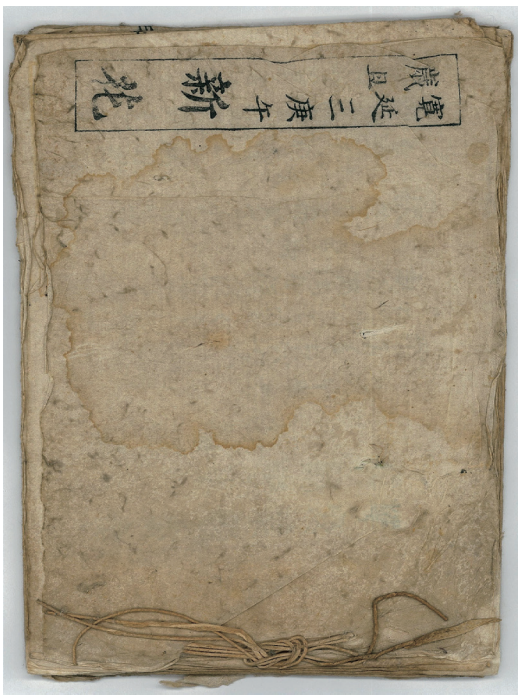 寛延三庚午
歳旦
新花